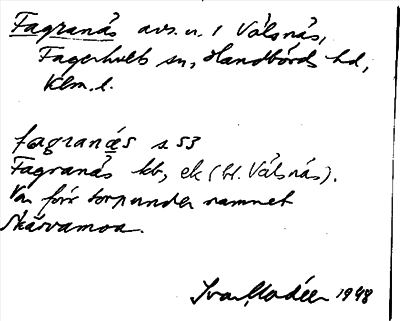 Fagranäs avs. u. 1 Välsnäs,
Fagerhults sn, Handbörds hd,
Klm. l.
fagranäs s 53
Fagranäs kb, ek (bl. Välsnäs).
Var förr torp under namnet
Skärvamoa.
Ivar Modéer 1948